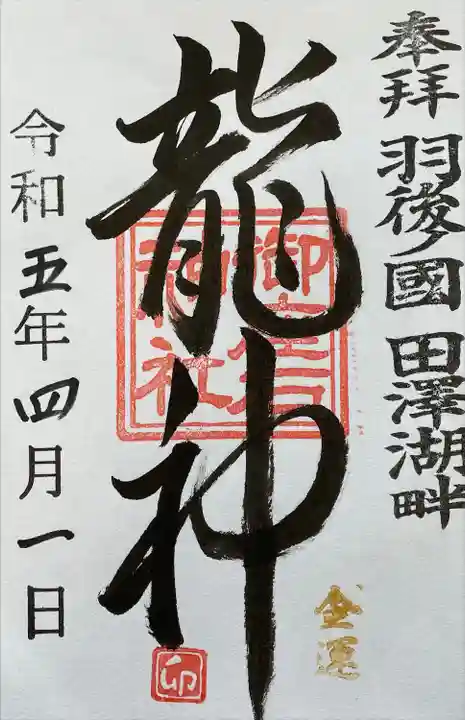 奉拝 羽後ノ國 田澤湖畔
龍神
御座石
神社
令和五年四月一日
金運
卯